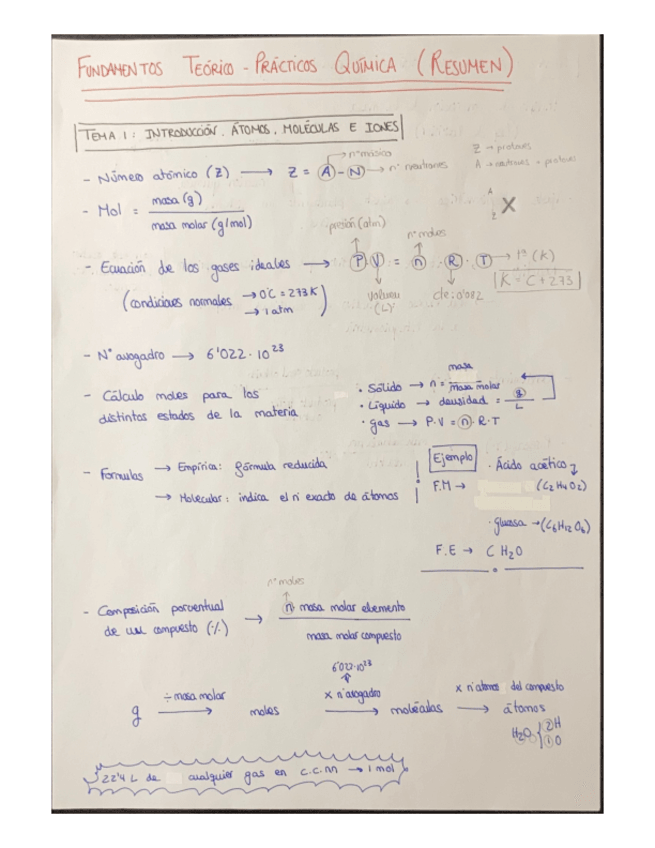 FUNDAMENTOS TEÓRICO - PRÁCTICOS QUÍMICA (RESUMEN)
TEMA 1: INTRODUCCIÓN. ÁTOMOS, MOLÉCULAS E IONES
- Número atómico (Z) → Z = A - N
nº másico
nº neutrones
Z → protones
A → neutrones + protones
A
Z X
- Mol = masa (g)
masa molar (g/mol)
- Ecuación de los gases ideales → P V = n · R · T
presión (atm)
nº moles
volumen (L)
cte: 0'082
Tª (K)
K = C + 273
(condiciones normales → 0ºC = 273 K
→ 1 atm)
- Nº avogadro → 6'022 · 10²³
- Cálculo moles para los
distintos estados de la materia
· Sólido → n = masa
masa molar
· Líquido → densidad = g
L
· gas → P·V = n·R·T
- Formulas → Empírica: fórmula reducida
→ Molecular: indica el nº exado de átomos
Ejemplo
· Ácido acético
F.M → (C₂H₄O₂)
· glucosa → (C₆H₁₂O₆)
F.E → C H₂O
- Composición porcentual
de un compuesto (%)
→ n · masa molar elemento
masa molar compuesto
nº moles
g → moles → moléculas → átomos
÷ masa molar
6'022·10²³
x nº avogadro
x nº átomos del compuesto
H₂O { 2 H
1 O
22'4 L de cualquier gas en c.c.n.n → 1 mol